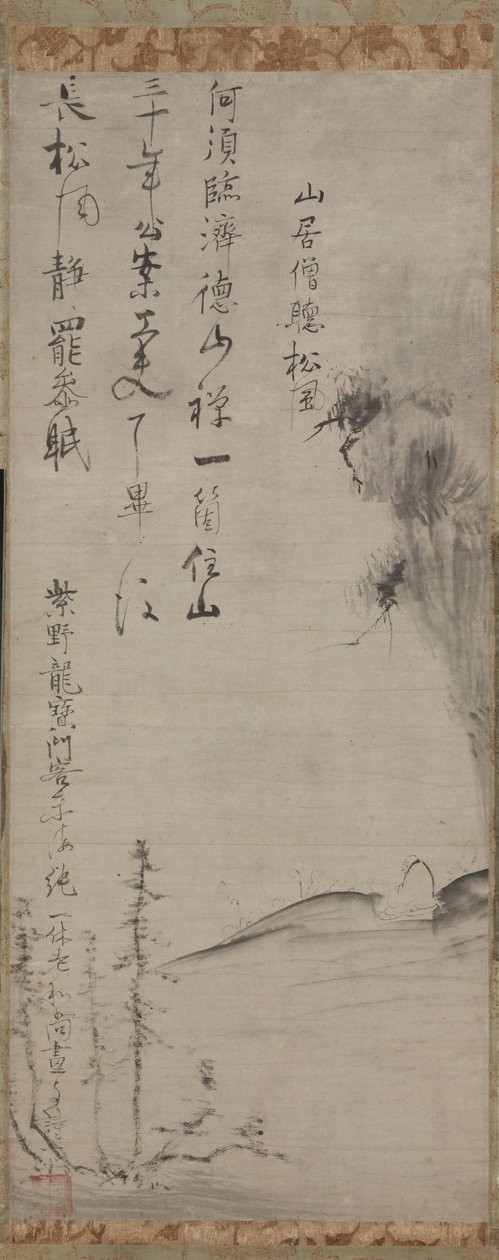 山居僧聽松風
何須臨濟德山禅一箇住山
三十年公案工夫了畢後
長松風静罷参眠
紫野龍寶山
一休老和尚畫